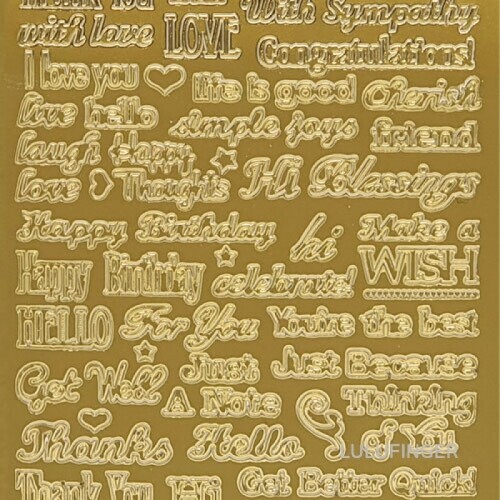 Thank You
With Sympathy
with love
LOVE
Congratulations!
I love you
life is good
Cherish
live
hello
simple joys
friend
laugh
Happy
Thoughts
love
Hi
Blessings
Happy Birthday
hi
Make a
WISH
Happy Birthday
celebrate!
HELLO
For You
You're the best
Get Well
Just
A Note
Just Because
Thinking
of You
Thanks
Hello
LULUFINGER
Thank You
Hi
Get Better Quick!